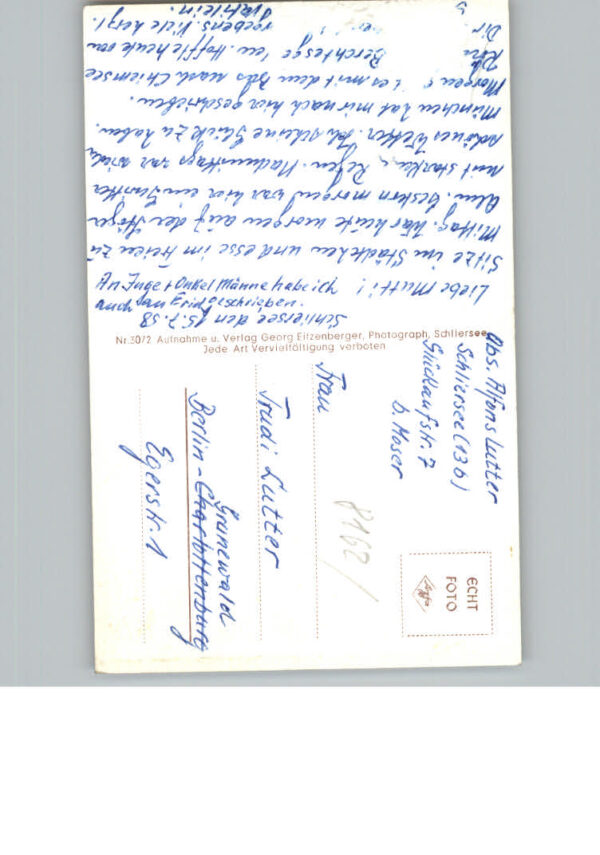 Schliersee den 15.7.58
Liebe Mutti!
An Inge + Onkel Männe habe ich
auch geschrieben.
Sitze im Städtchen und esse im Freien zu
Mittag. War heute morgen auf der
Alm. Gestern morgen war hier ein Gewitter
mit starkem Regen. Nachmittags war wieder
schönes Wetter. Ich scheine Glück zu haben.
München hat mir nach hier geschrieben.
Morgen es mit dem Bus nach Chiemsee
Berchtesg Hoffe heute von
Dir
Viele herzl.
Nr.30/2 Aufnahme u. Verlag Georg Eitzenberger, Photograph, Schliersee
Jede Art Vervielfältigung verboten
Abs. Alfons Lutter
Schliersee (13b)
Glückaufstr. 7
b. Moser
ECHT
FOTO
Agfa
8162/
Frau
Trudi Lutter
Berlin-Charlottenburg
Grunewald
Egerstr. 1